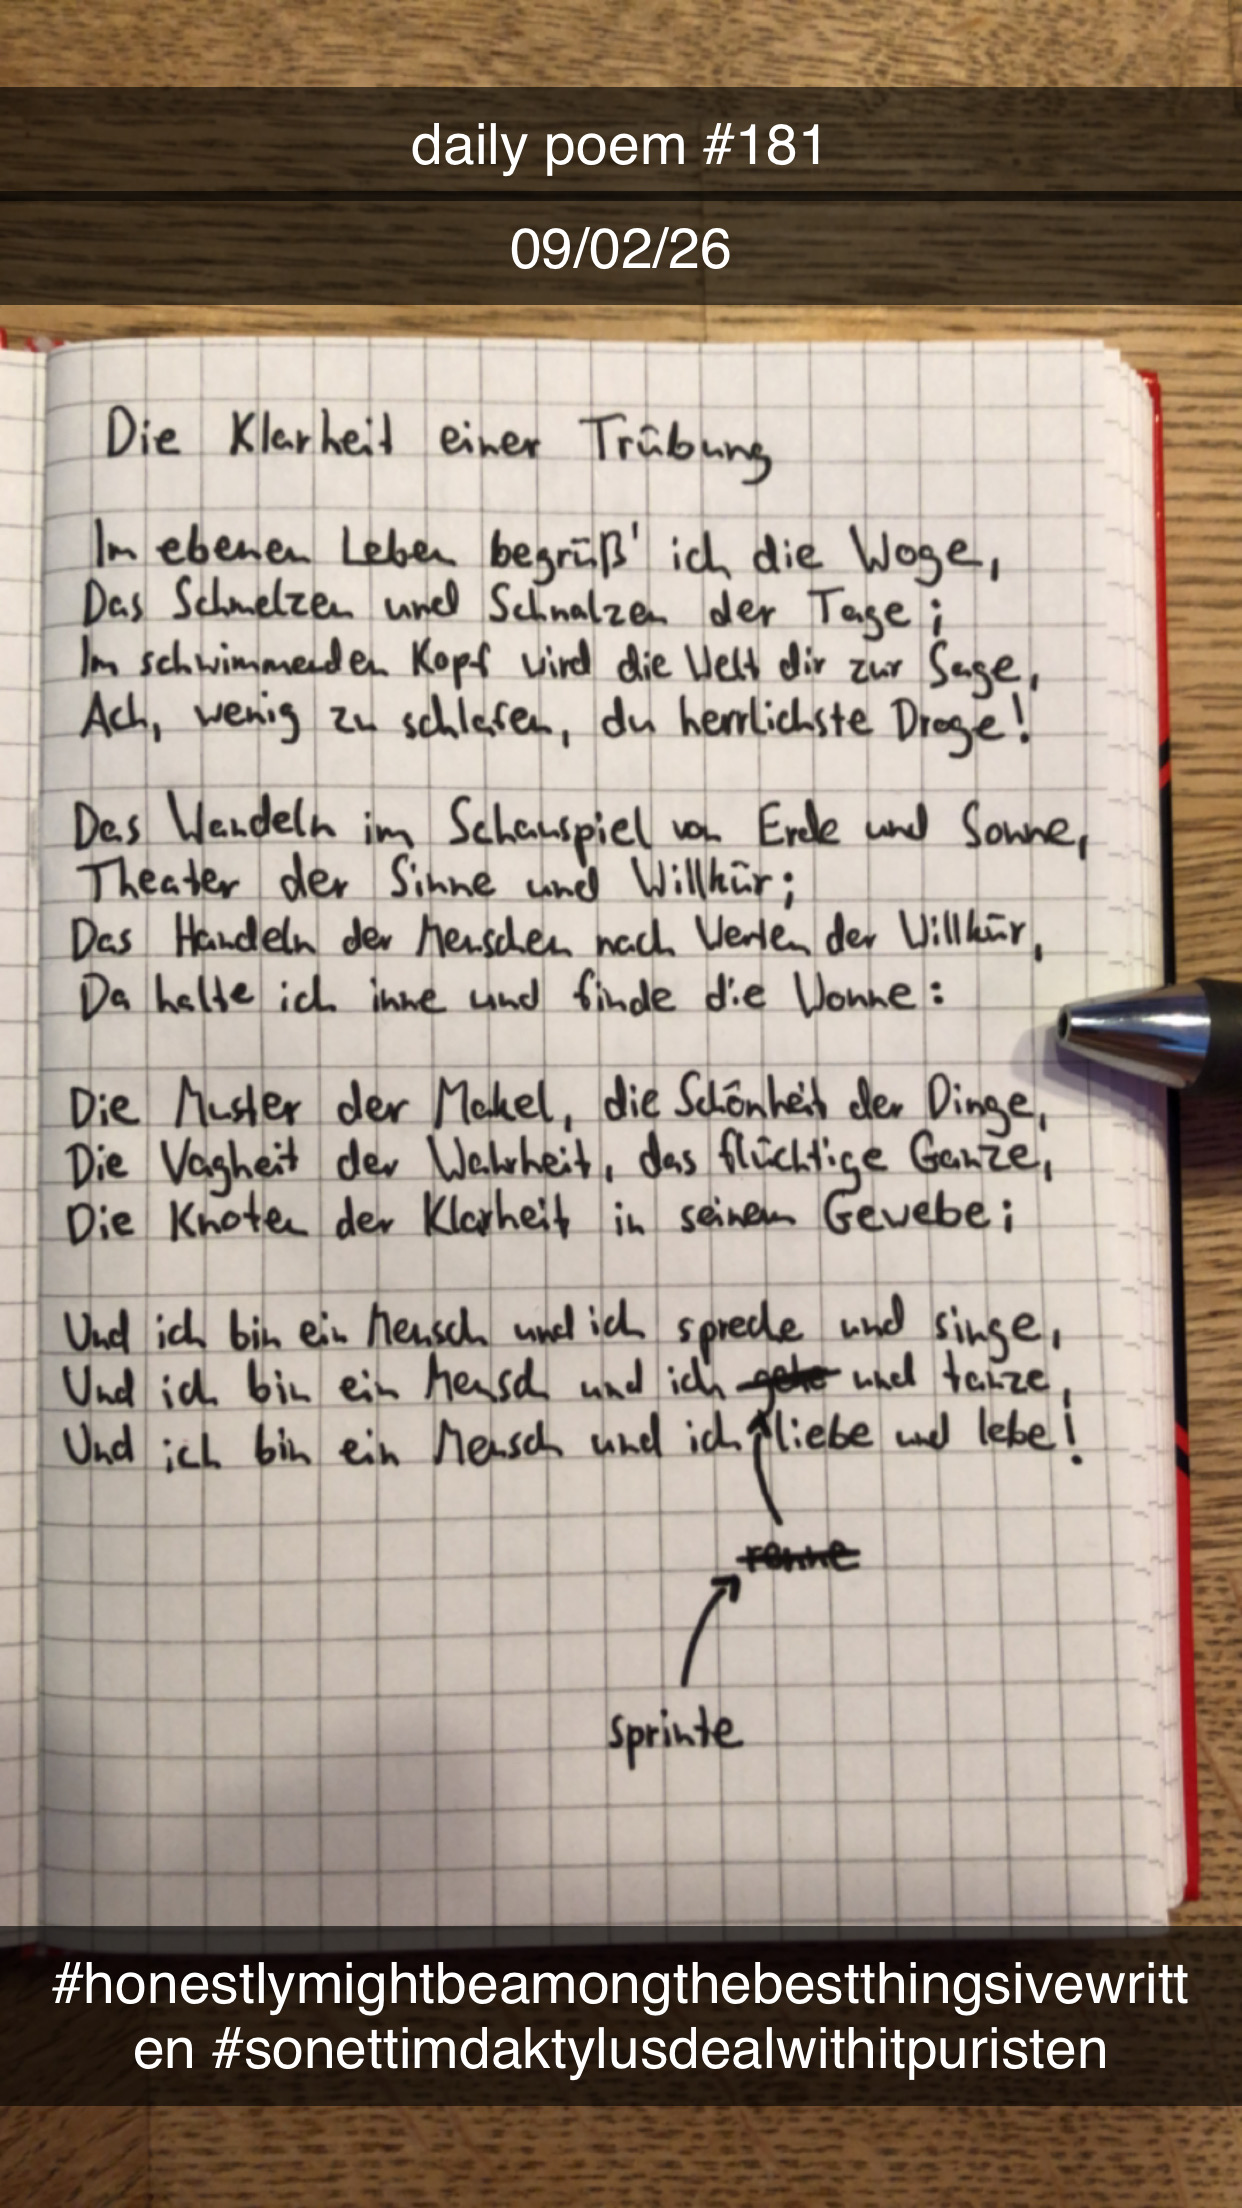 daily poem #181
09/02/26
Die Klarheit einer Trübung
Im ebenen Leben begrüß' ich die Woge,
Das Schmelzen und Schnalzen der Tage;
Im schwimmenden Kopf wird die Welt dir zur Sage,
Ach, wenig zu schlafen, du herrlichste Droge!
Das Wandeln im Schauspiel von Erde und Sonne,
Theater der Sinne und Willkür;
Das Handeln der Menschen nach Werten der Willkür,
Da halte ich inne und finde die Wonne:
Die Muster der Makel, die Schönheit der Dinge,
Die Vagheit der Wahrheit, das flüchtige Ganze,
Die Knoten der Klarheit in seinem Gewebe;
Und ich bin ein Mensch und ich spreche und singe,
Und ich bin ein Mensch und ich gehe und tanze,
Und ich bin ein Mensch und ich liebe und lebe!
renne
sprinte
#honestlymightbeamongthebestthingsivewritt
en #sonettimdaktylusdealwithitpuristen